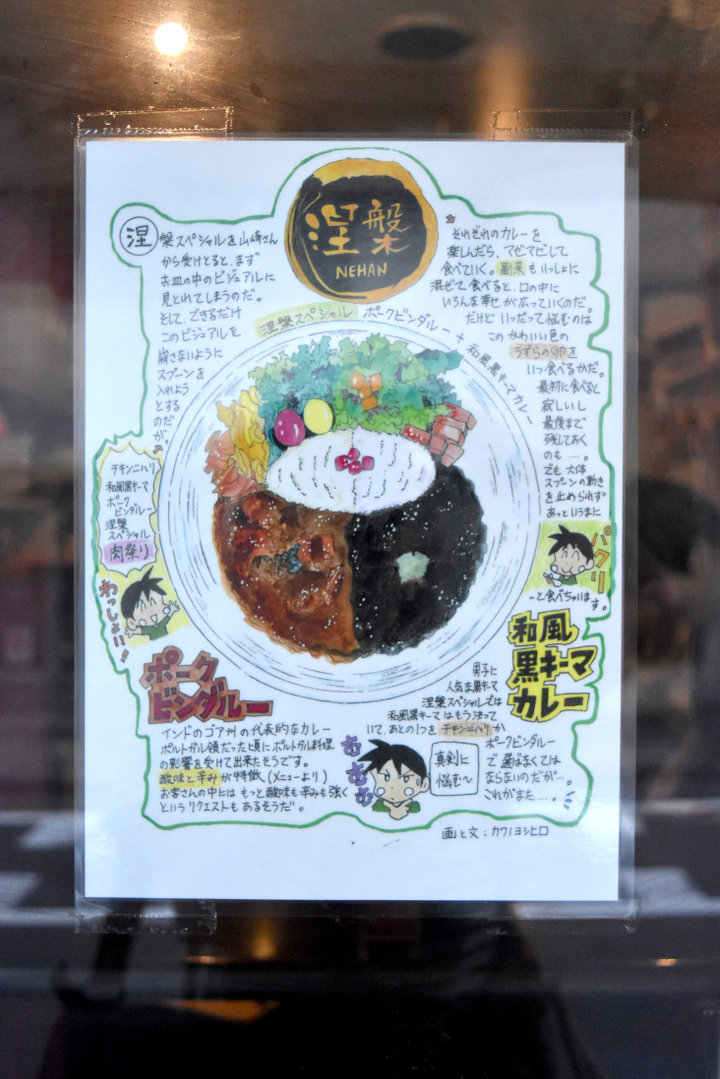 涅槃
NEHAN
涅
槃スペシャルを山崎さん
から受けとると、まず
お皿の中のビジュアルに
見とれてしまうのだ。
そして、できるだけ
このビジュアルを
崩さないように
スプーンを
入れよう
とする
のだ
が。
涅槃スペシャル ポークビンダルー + 和風黒キーマカレー
それぞれのカレーを
楽しんだら、マゼマゼして
食べていく。副菜もいっしょに
混ぜて食べると、口の中に
いろんな幸せが広っていくのだ。
だけど いつだって悩むのは
このかわいい色の
うずらの卵を
いつ食べるかだ。
最初に食べると
寂しいし
最後まで
残しておく
のも‥‥。
でも大体
スプーンの動き
を止められず
あっというまに
パクリ
‥と食べちゃいます。
チキンニハリ
和風黒キーマ
ポーク
ビンダルー
涅槃
スペシャル
肉祭り
わっしょい!!
ポーク
ビンダルー
インドのゴア州の代表的なカレー
ポルトガル領だった頃にポルトガル料理
の影響を受けて出来たそうです。
酸味と辛みが特徴(メニューより)
お客さんの中には もっと酸味も辛みも強く
というリクエストもあるそうだ。
和風
黒キーマ
カレー
男子に
人気な黒キーマ
涅槃スペシャルでは
和風黒キーマはもう決って
いて、あとの1つをチキンニハリか
ポークビンダルー
で選ばなくては
ならないのだが‥‥
これがまた‥‥。
むむむ
真剣に
悩む〜
画と文:カワノヨシヒロ